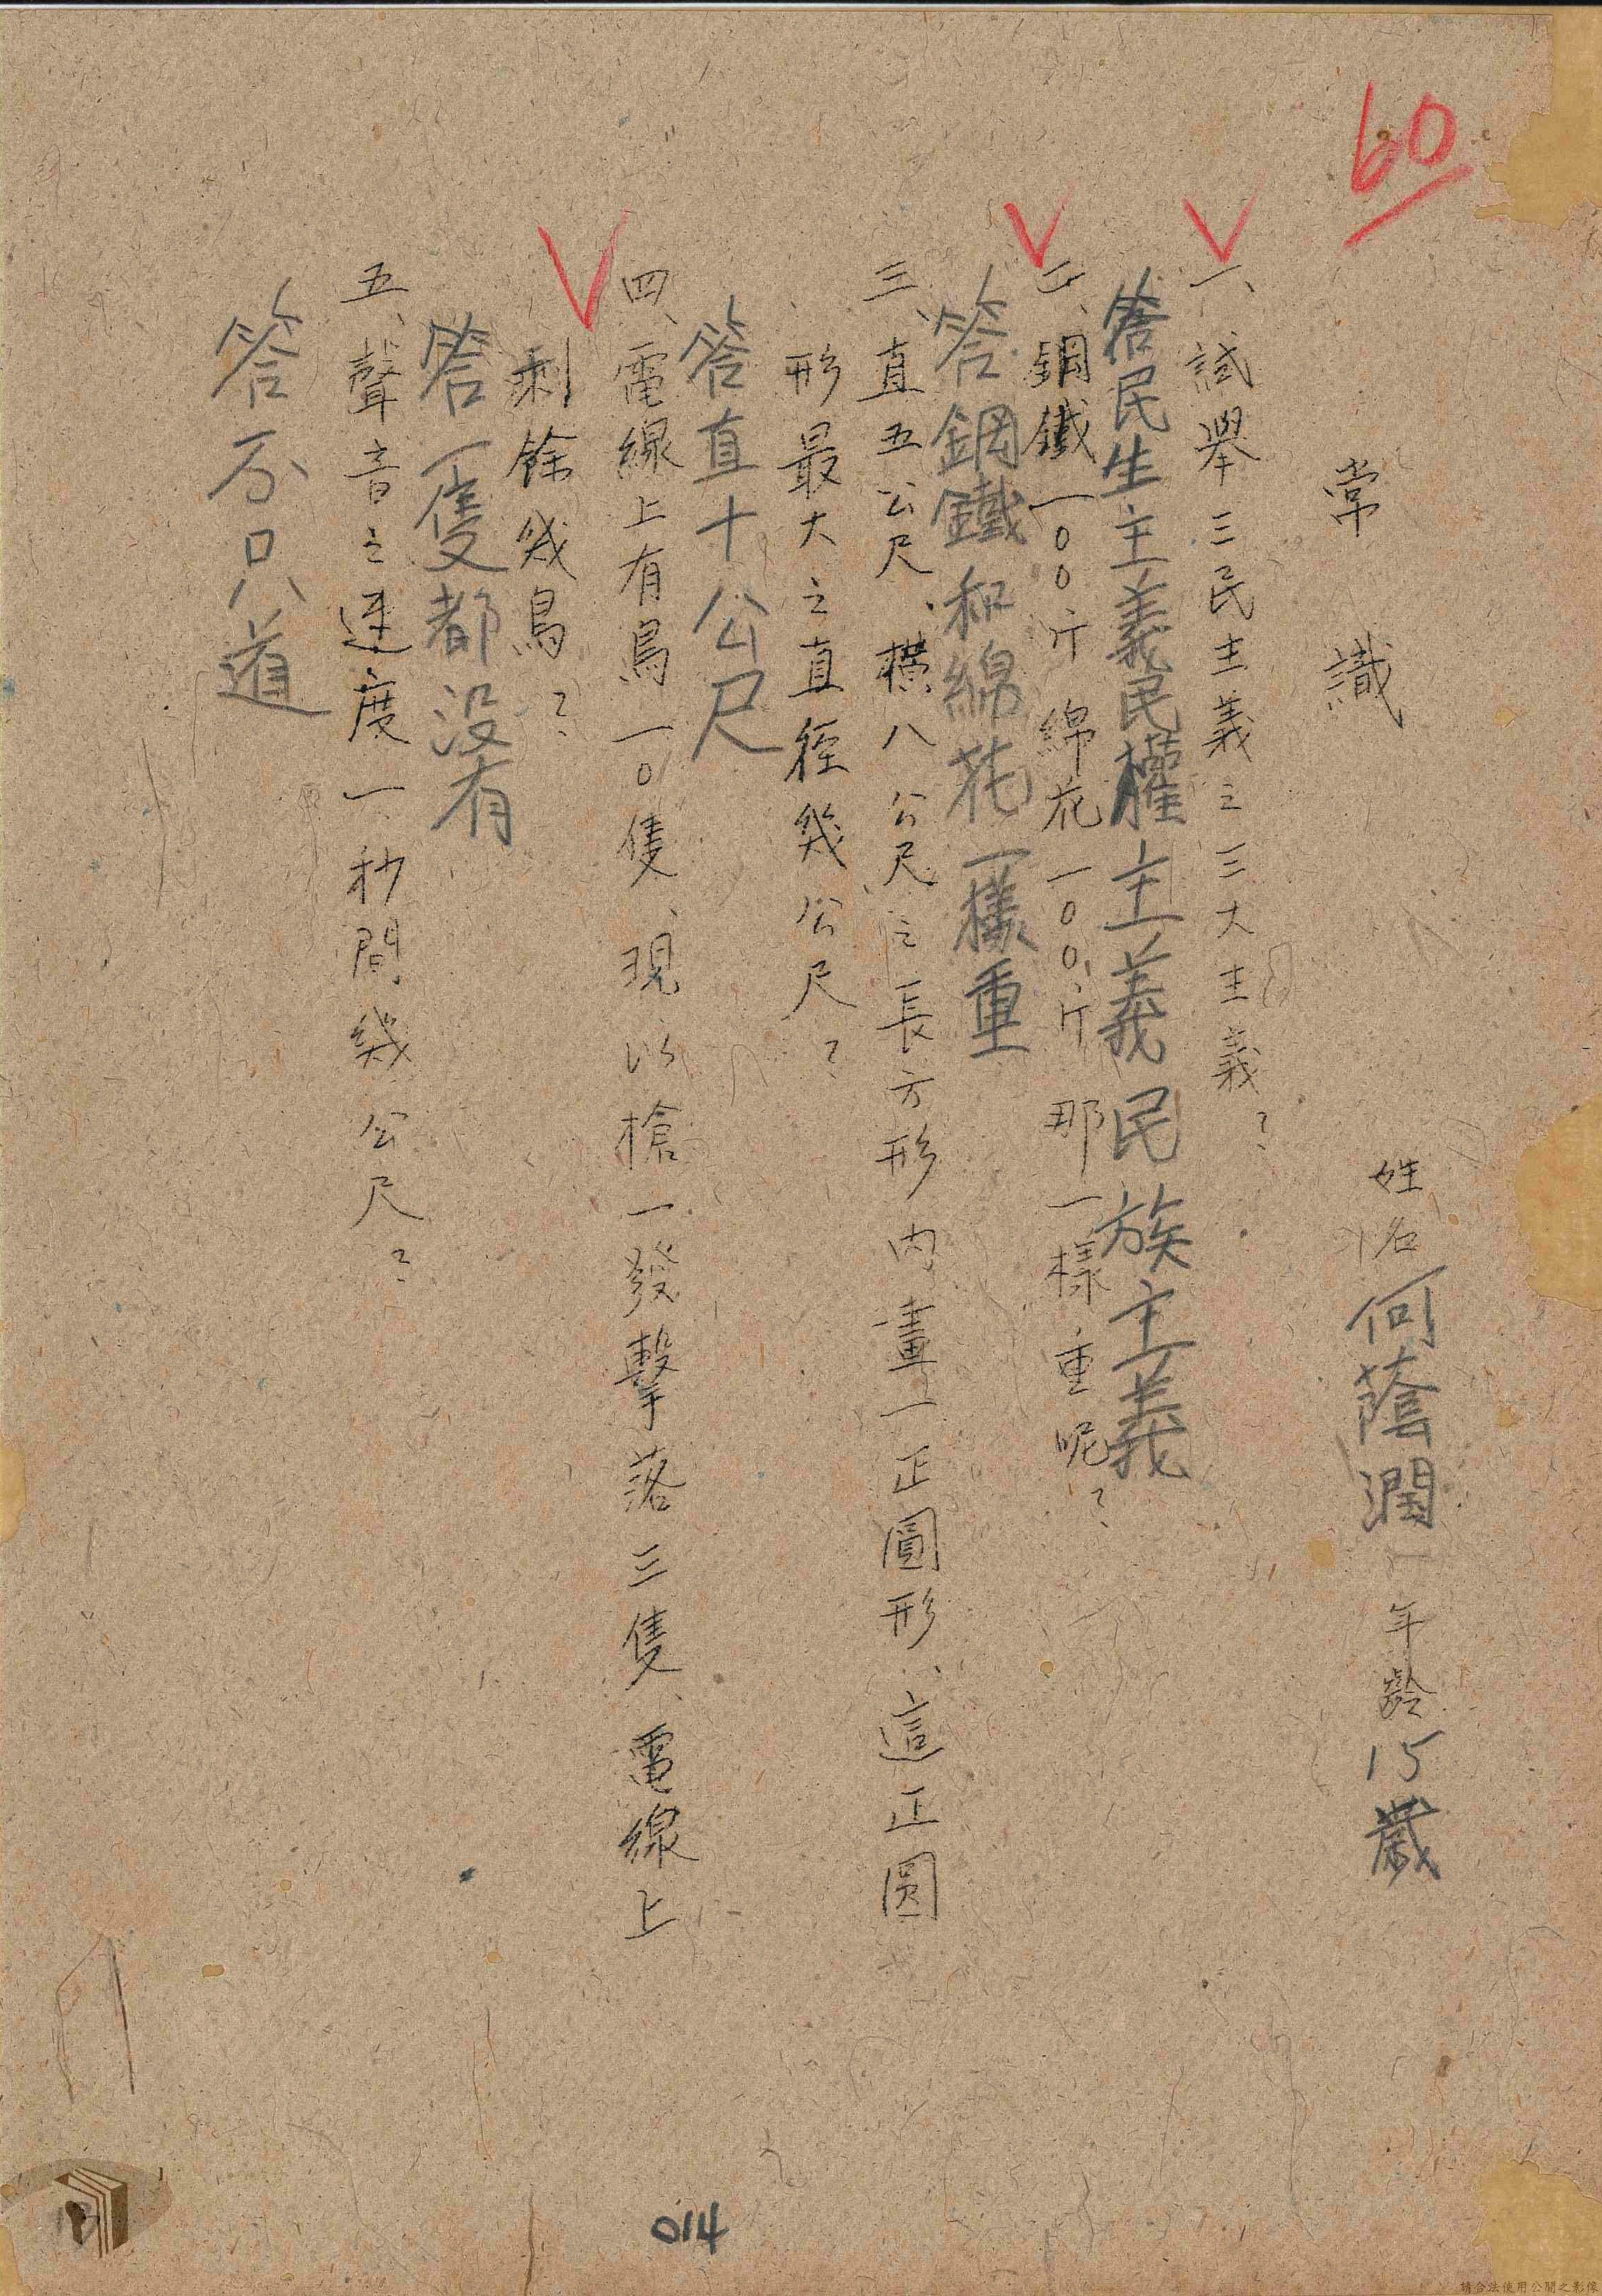 60
常識
姓名 何蔭潤 年齡 15歲
一、試舉三民主義之三大主義?
答民生主義民權主義民族主義
二、鋼鐵一00斤綿花一00斤那一樣重呢?
答鋼鐵和綿花一樣重
三、直五公尺、橫八公尺之長方形內畫一正圓形、這正圓
形最大之直徑幾公尺?
答直十公尺
四、電線上有鳥一0隻、現以槍一發擊落三隻、電線上
剩餘幾鳥?
答一隻都没有
五、聲音之速度一秒間幾公尺?
答不只道
014
請合法使用公開之影像